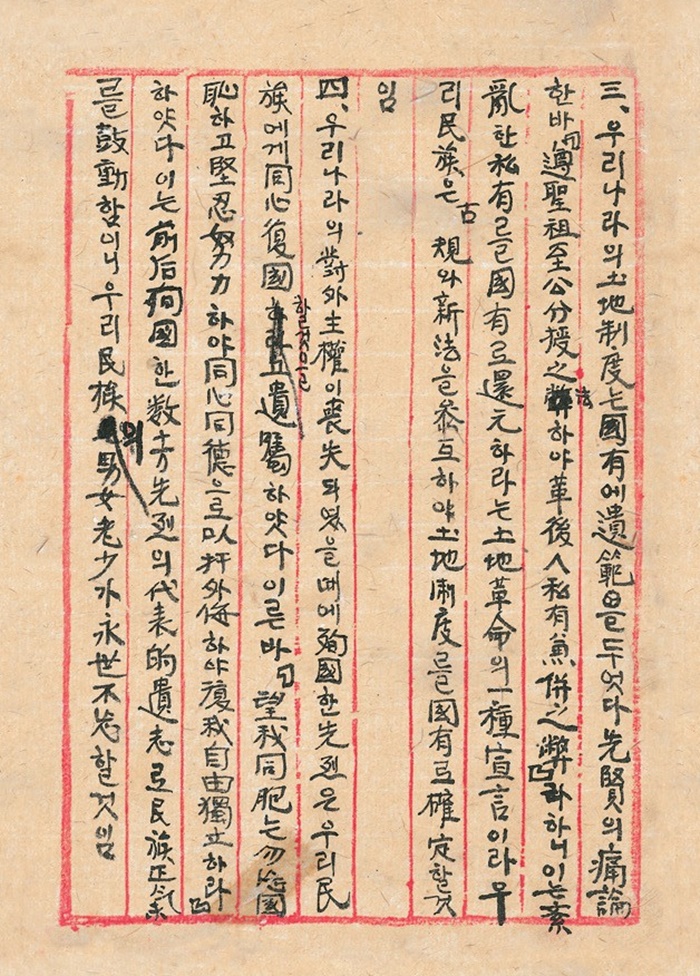 三、우리나라의土地制度는國有에遺範을두엇다先賢의痛論
한바「遵聖祖至公分授之法하야革後人私有兼併之弊」라하니이는紊
亂한私有를國有로還元하라는土地革命의一種宣言이라우
리民族은古規와新法을參互하야土地制度를國有로確定할것
임
四、우리나라의對外主權이喪失되엿을때에殉國한先烈은우리民
族에게同心復國할것을遺囑하얏다이른바「望我同胞는勿忘國
恥하고堅忍努力하야同心同德으로以扞外侮하야復我自由獨立하라」
하얏다이는前后殉國한数十万先烈의代表的遺志로民族正氣
를鼓動함이니우리民族의男女老少가永世不忘할것임